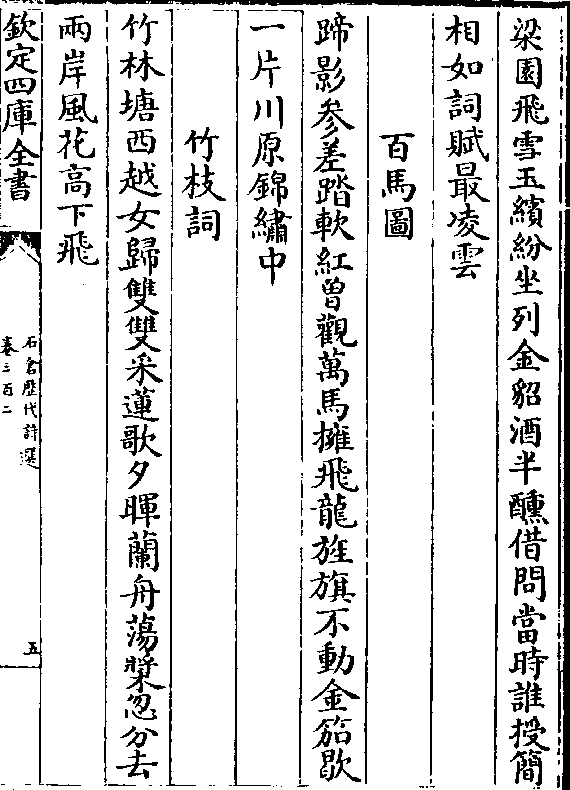 梁園飛雪玉繽紛坐列金貂酒半醺借問當時誰授簡
相如詞賦最凌雲
百馬圖
蹄影參差踏軟紅曽觀萬馬擁飛龍旌旗不動金笳歇
一片川原錦繡中
竹枝詞
竹林塘西越女歸雙雙采蓮歌夕暉蘭舟蕩槳忽分去
兩岸風花高下飛
欽定四庫全書
石倉歷代詩選
卷三百二
五